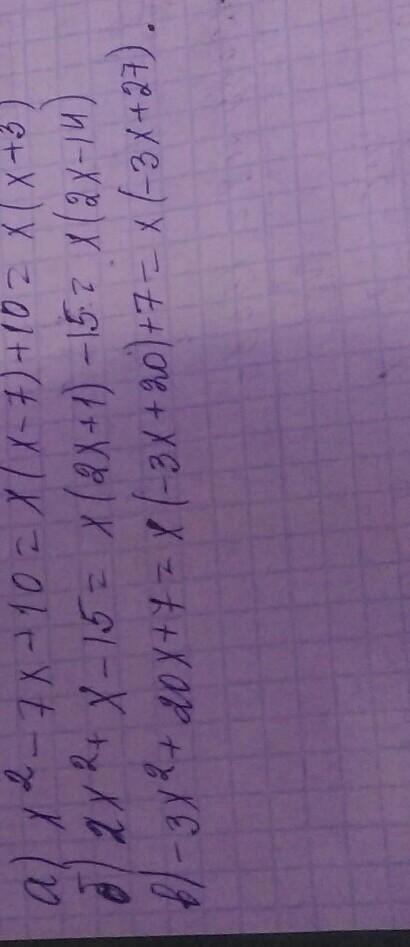 а) x² - 7x + 10 = x(x-7)+10 = x(x+3)
б) 2x² + x - 15 = x(2x+1) - 15 = x(2x-14)
в) -3x² + 20x + 7 = x(-3x+20)+7 = x(-3x+27).